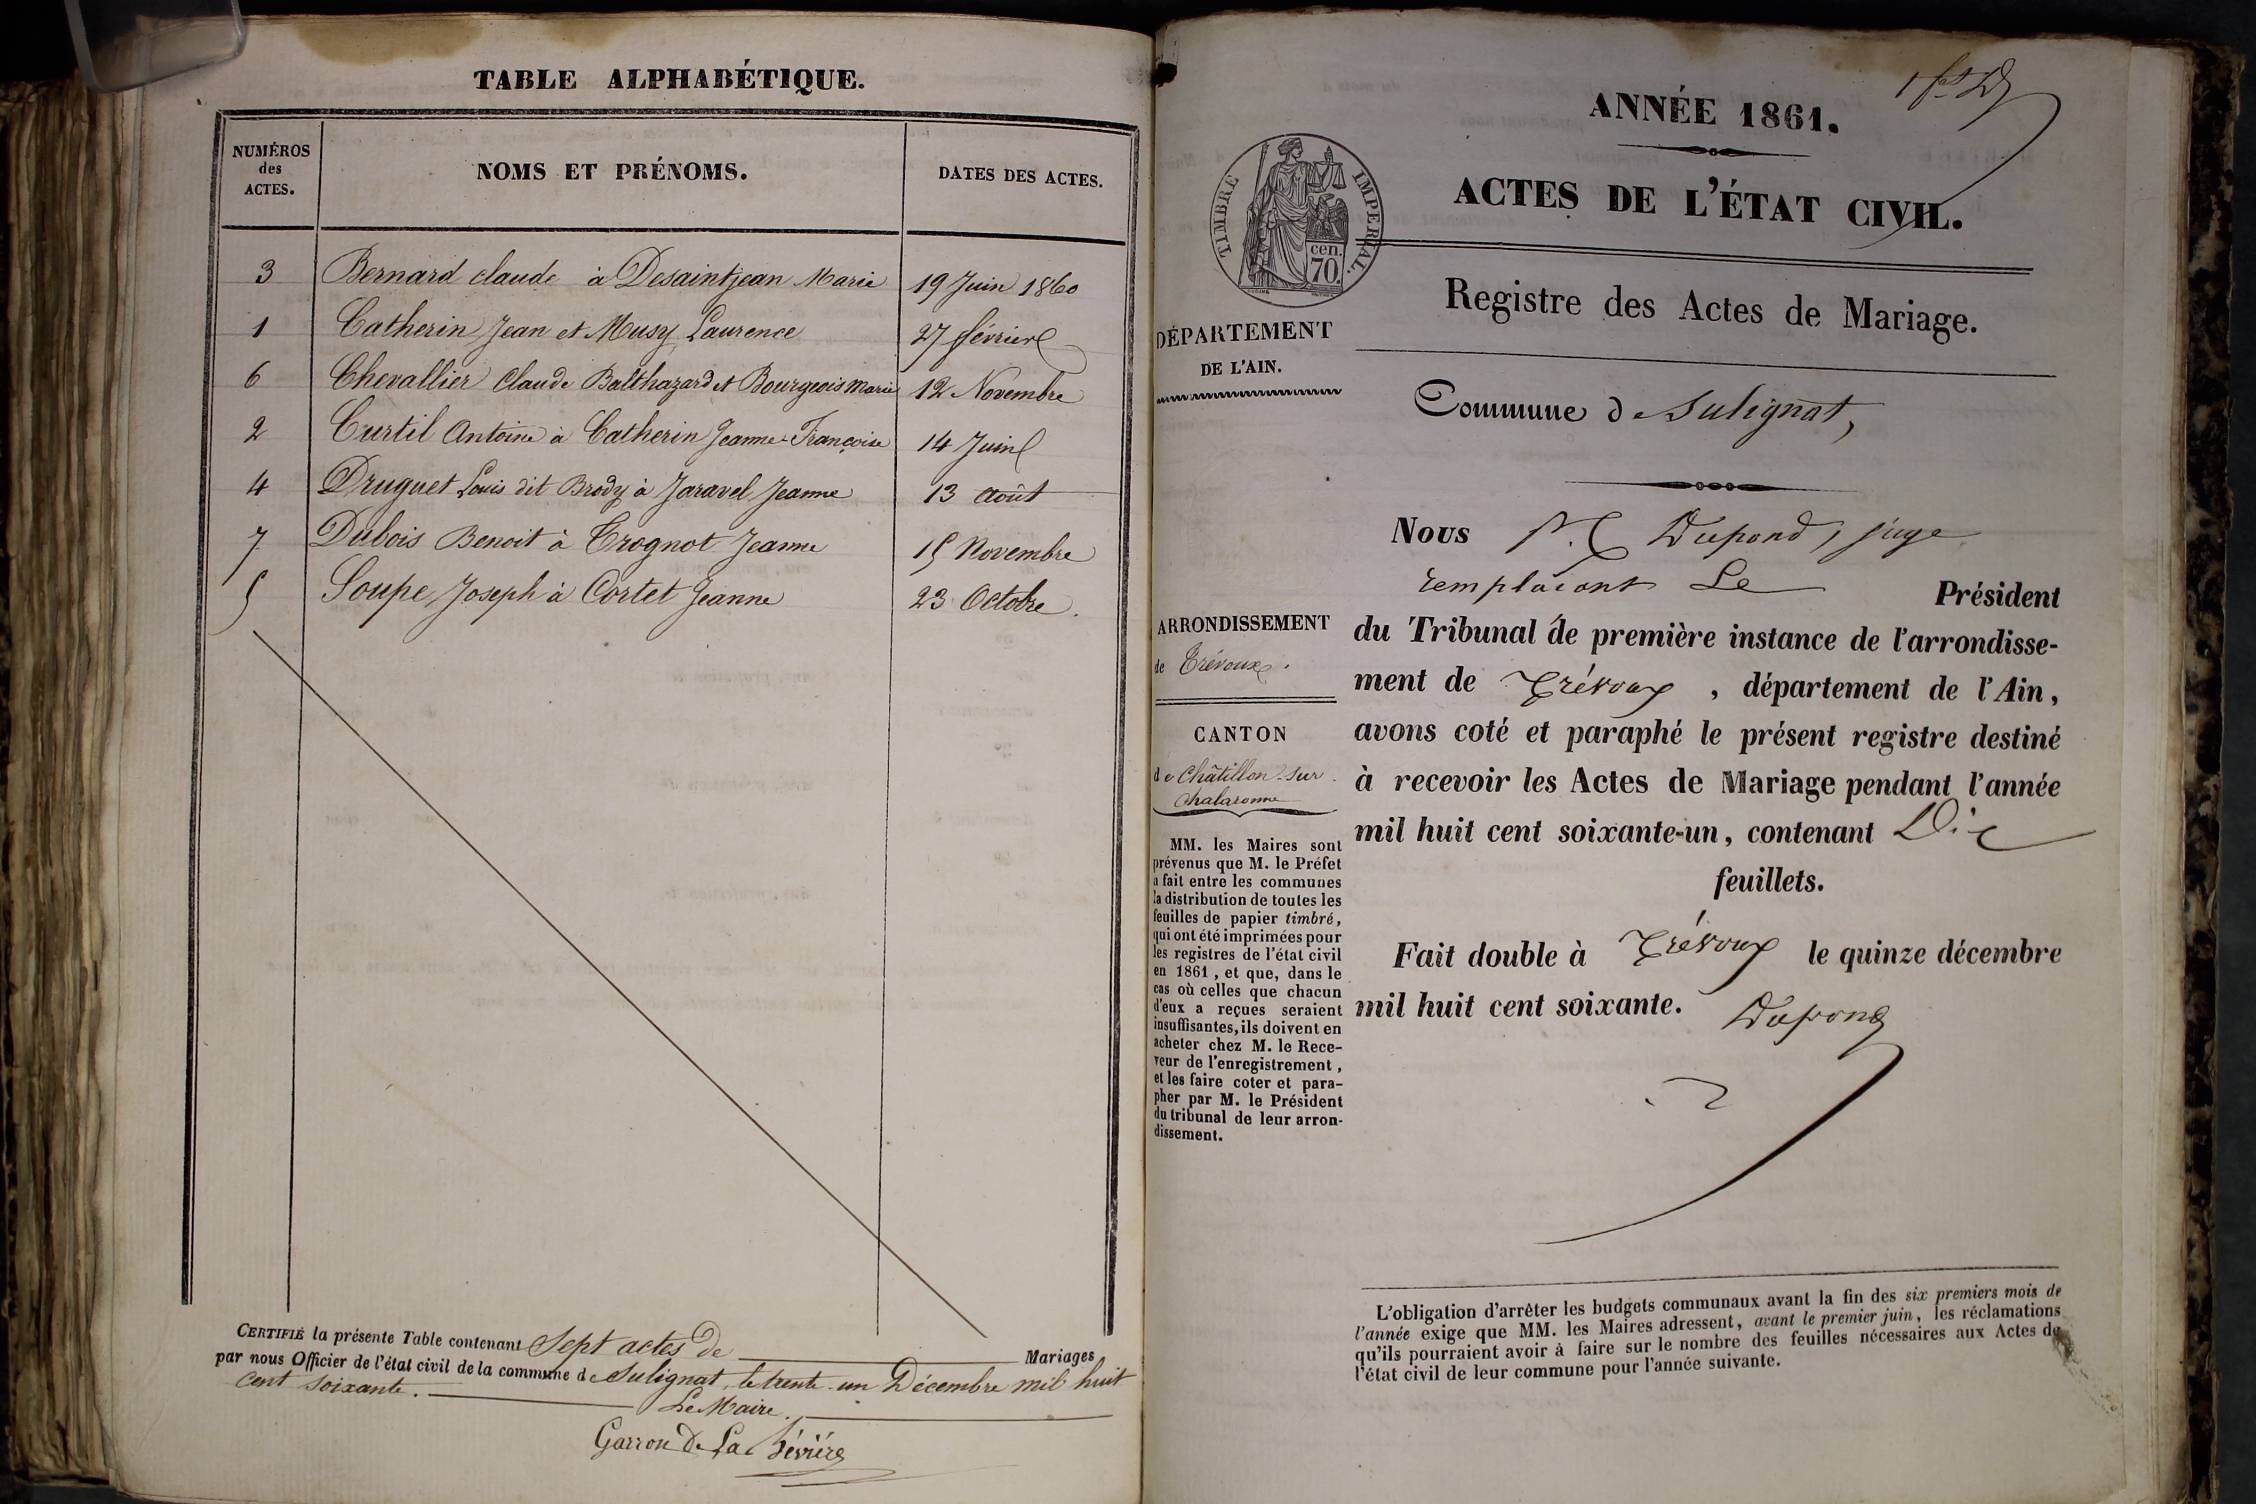 TABLE ALPHABÉTIQUE.
NUMÉROS
des
ACTES.
NOMS ET PRÉNOMS.
DATES DES ACTES.
3 Bernard Claude à Desaintjean Marie 19 Juin 1860
1 Catherin Jean et Musy Laurence 27 février
6 Chevallier Claude Balthazard et Bourgeois Marie 12 Novembre
2 Curtil Antoine à Catherin Jeanne-Françoise 14 Juin
4 Druguet Louis dit Brody à Jaravel Jeanne 13 août
7 Dubois Benoit à Trognot Jeanne 15 Novembre
5 Soupe Joseph à Cortet Jeanne 23 Octobre.
CERTIFIÉ la présente Table contenant Sept actes de Mariages
par nous Officier de l'état civil de la commune de Sulignat, le trente-un Décembre mil huit
cent soixante.
Le Maire.
Garron de La Bévière
ANNÉE 1861.
ACTES DE L'ÉTAT CIVIL.
TIMBRE IMPÉRIAL.
cen.
70.
Registre des Actes de Mariage.
DÉPARTEMENT
DE L'AIN.
Commune de Sulignat,
ARRONDISSEMENT
de Trévoux.
CANTON
de Châtillon-sur-
Chalaronne
MM. les Maires sont
prévenus que M. le Préfet
a fait entre les communes
la distribution de toutes les
feuilles de papier timbré,
qui ont été imprimées pour
les registres de l'état civil
en 1861, et que, dans le
cas où celles que chacun
d'eux a reçues seraient
insuffisantes, ils doivent en
acheter chez M. le Rece-
veur de l'enregistrement,
et les faire coter et para-
pher par M. le Président
du tribunal de leur arron-
dissement.
Nous Dupond, juge
remplacant Le Président
du Tribunal de première instance de l'arrondisse-
ment de Trévoux, département de l'Ain,
avons coté et paraphé le présent registre destiné
à recevoir les Actes de Mariage pendant l'année
mil huit cent soixante-un, contenant Dix
feuillets.
Fait double à Trévoux le quinze décembre
mil huit cent soixante.
Dupond
L'obligation d'arrêter les budgets communaux avant la fin des six premiers mois de
l'année exige que MM. les Maires adressent, avant le premier juin, les réclamations
qu'ils pourraient avoir à faire sur le nombre des feuilles nécessaires aux Actes de
l'état civil de leur commune pour l'année suivante.